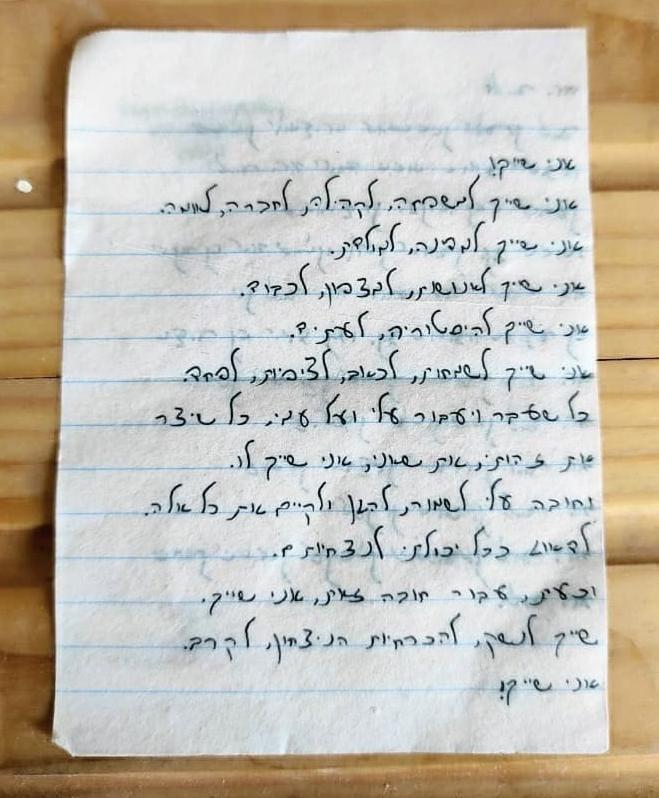 אני שייך!
אני שייך למשפחה, לקהילה, לחברה, לאומה.
אני שייך למדינה, למולדת.
אני שייך לאנושות, למצפון, לכבוד.
אני שייך להיסטוריה, לעתיד.
אני שייך לשמחות, לכאב, לציפיות, לפחד.
כל שעבר ויעבור עלי ועל עמי, כל שיצר
את זהותי, את שאני, אני שייך לו.
וחובה עלי לשמור, להגן ולקיים את כל אלה.
לדאוג ככל יכולתי לנצחיותם.
וכעת, עבור חובה זאת, אני שייך.
שייך לנשק, להכרחיות הניצחון, לקרב.
אני שייך!